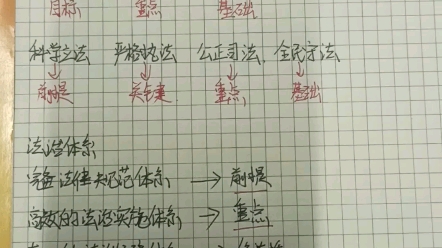 目标 重点 基础
科学立法 严格执法 公正司法 全民守法
↓ ↓ ↓ ↓
前提 关键 重点 基础
法治体系
完备法律规范体系 → 前提
高效的法治实施体系 → 重点